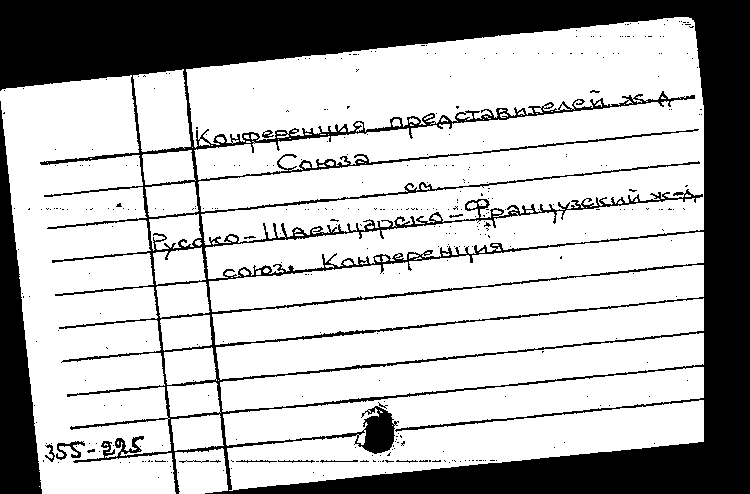 Конференция представителей ж-д
Союза
см.
Русско-Швейцарско-Французский ж-д
союз. Конференция
355-225